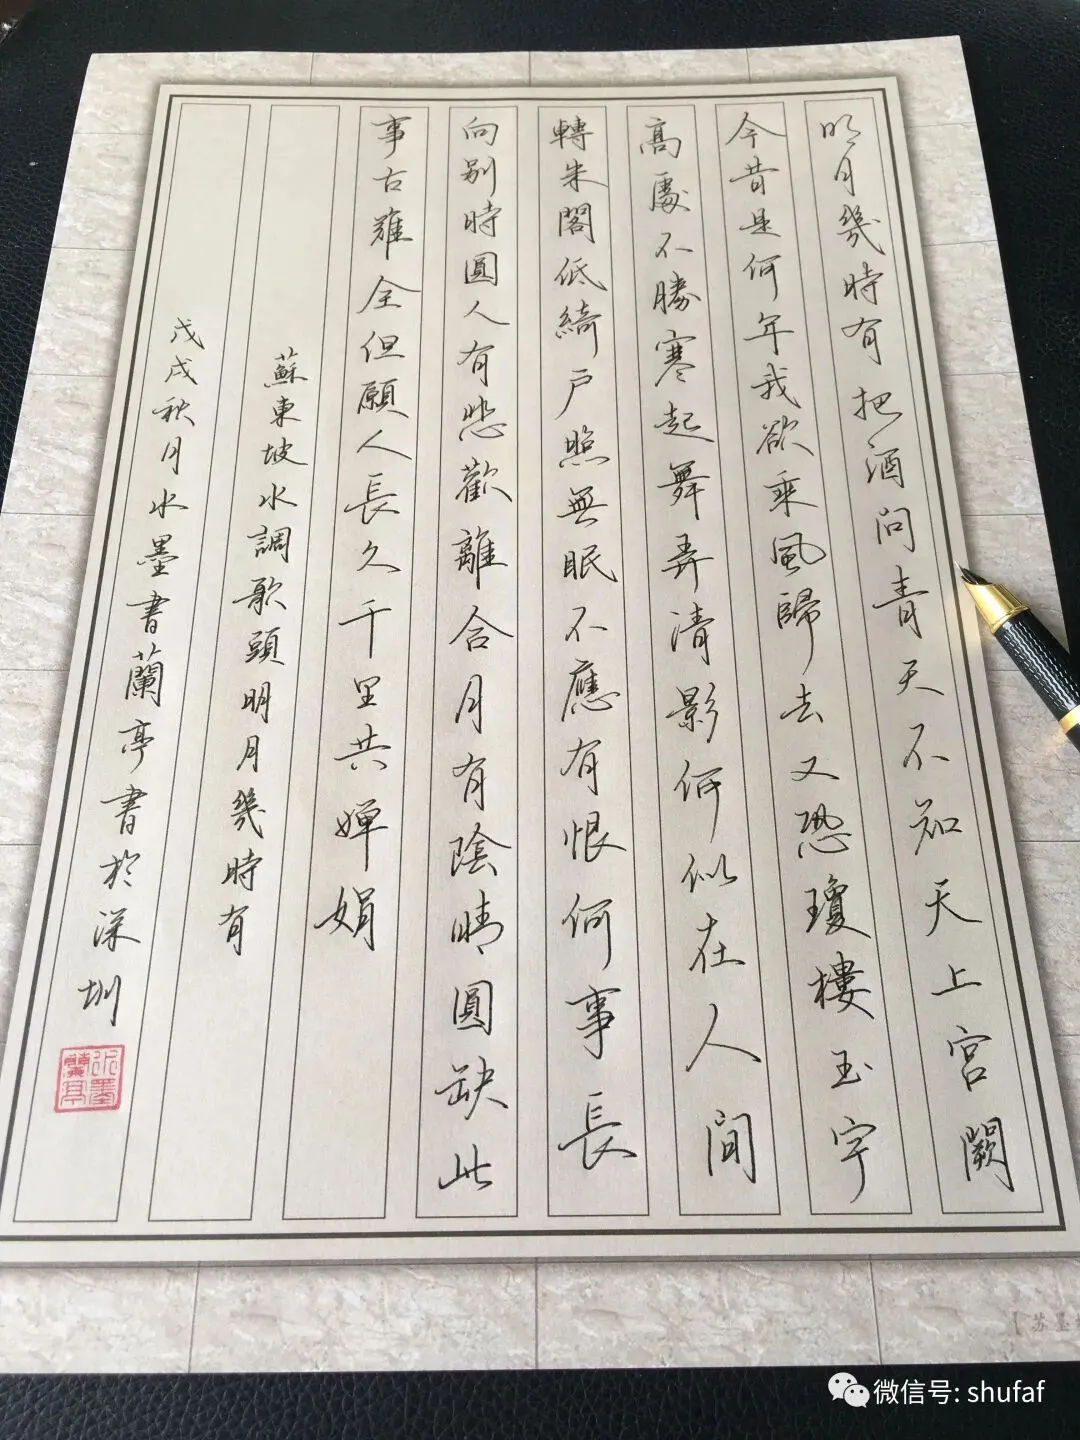 明月幾時有把酒問青天不知天上宮闕
今昔是何年我欲乘風歸去又恐瓊樓玉宇
高處不勝寒起舞弄清影何似在人間
轉朱閣低綺戶照無眠不應有恨何事長
向别時圓人有悲歡離合月有陰晴圓缺此
事古難全但願人長久千里共嬋娟
蘇東坡水調歌頭明月幾時有
戊戌秋月水墨書蘭亭書於深圳
水墨
蘭亭
【苏墨
微信号: shufaf